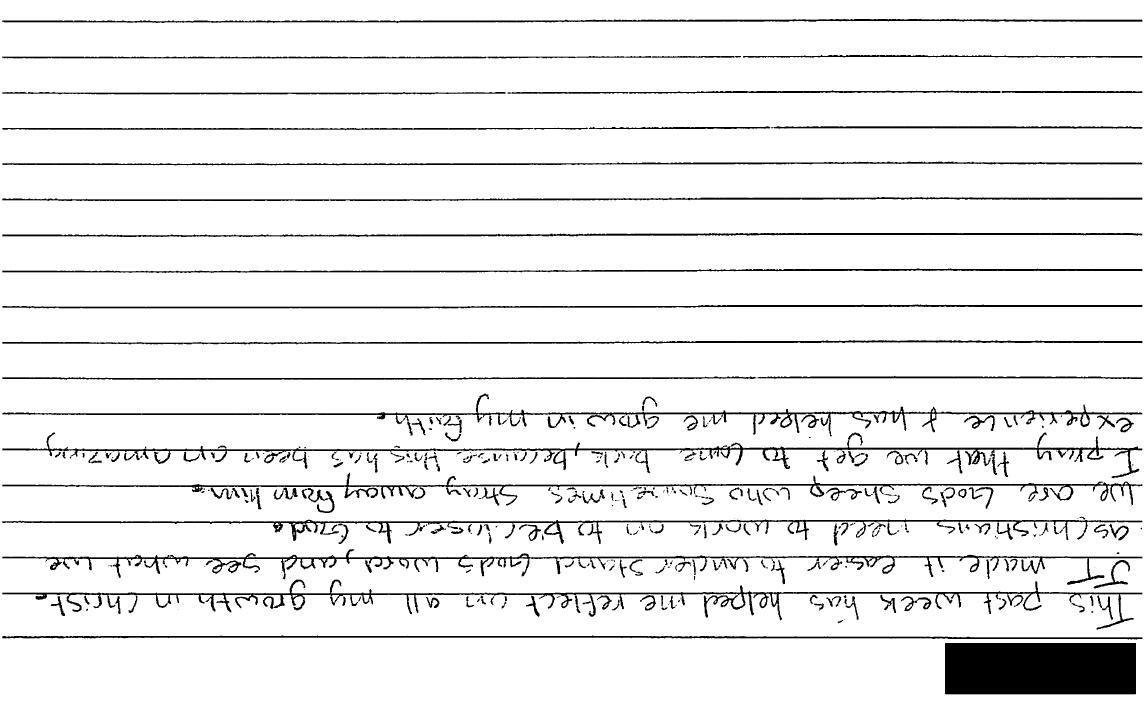 This past week has helped me reflect on all my growth in Christ.
IT made it easier to under stand Gods word, and see what we
as Christians need to work on to be closer to God.
We are Gods sheep who Sometimes stray away from him.
I pray that we get to come back, because this has been an amazing
experience & has helped me grow in my faith.